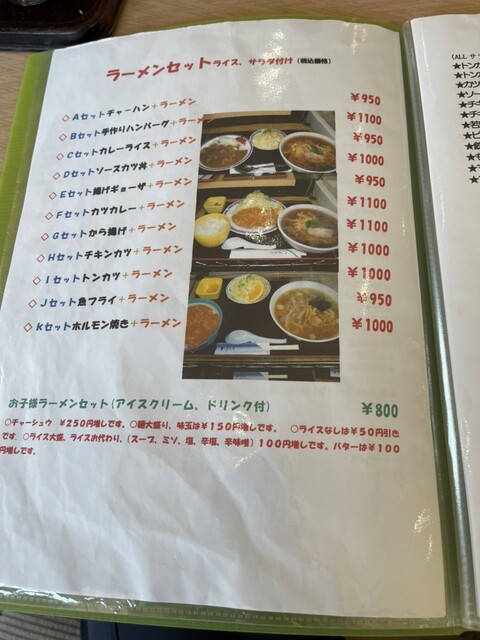 ラーメンセット ライス、サラダ付け (税込価格)
◇Aセットチャーハン+ラーメン ¥950
◇Bセット手作りハンバーグ+ラーメン ¥1100
◇Cセットカレーライス+ラーメン ¥950
◇Dセットソースカツ丼+ラーメン ¥1000
◇Eセット揚げギョーザ+ラーメン ¥950
◇Fセットカツカレー+ラーメン ¥1100
◇Gセットから揚げ+ラーメン ¥1100
◇Hセットチキンカツ+ラーメン ¥1000
◇Iセットトンカツ+ラーメン ¥1000
◇Jセット魚フライ+ラーメン ¥950
◇Kセットホルモン焼き+ラーメン ¥1000
お子様ラーメンセット(アイスクリーム、ドリンク付) ¥800
○チャーシュウ ¥250円増しです。○麺大盛り、味玉は¥150円増しです。 ○ライスなしは¥50円引き
です。○ライス大盛、ライスお代わり、(スープ、ミソ、塩、辛塩、辛味噌)100円増しです、バターは¥100
円増しです。
(ALL サ
★トンカ
★トン
★カツ
★ソー
★チキ
★チ